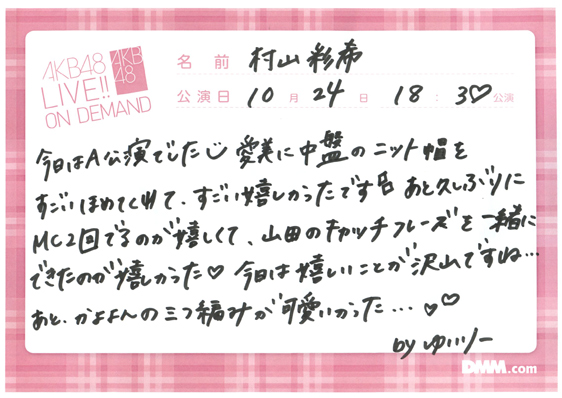 AKB48
LIVE!!
ON DEMAND
AKB
48
名前 村山彩希
公演日 10月24日 18:3♡公演
今日はA公演でした 愛美に中盤のニット帽を
すごいほめてくれて、すごい嬉しかったです あと久しぶりに
MC2回でるのが嬉しくて、山田のキャッチフレーズを一緒に
できたのが嬉しかった♡ 今日は嬉しいことが沢山ですね…
あと、かよよんの三つ編みが可愛いかった…♡♡
by ゆいりー
DMM.com